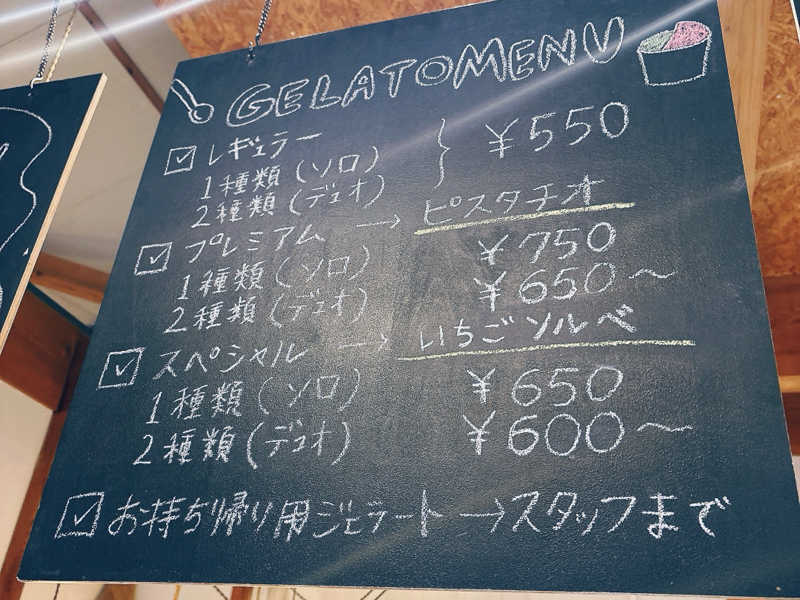 GELATO MENU
レギュラー
1種類(ソロ)
2種類(デュオ)
} ¥550
プレミアム → ピスタチオ
1種類(ソロ) ¥750
2種類(デュオ) ¥650〜
スペシャル → いちごソルベ
1種類(ソロ) ¥650
2種類(デュオ) ¥600〜
お持ち帰り用ジェラート → スタッフまで